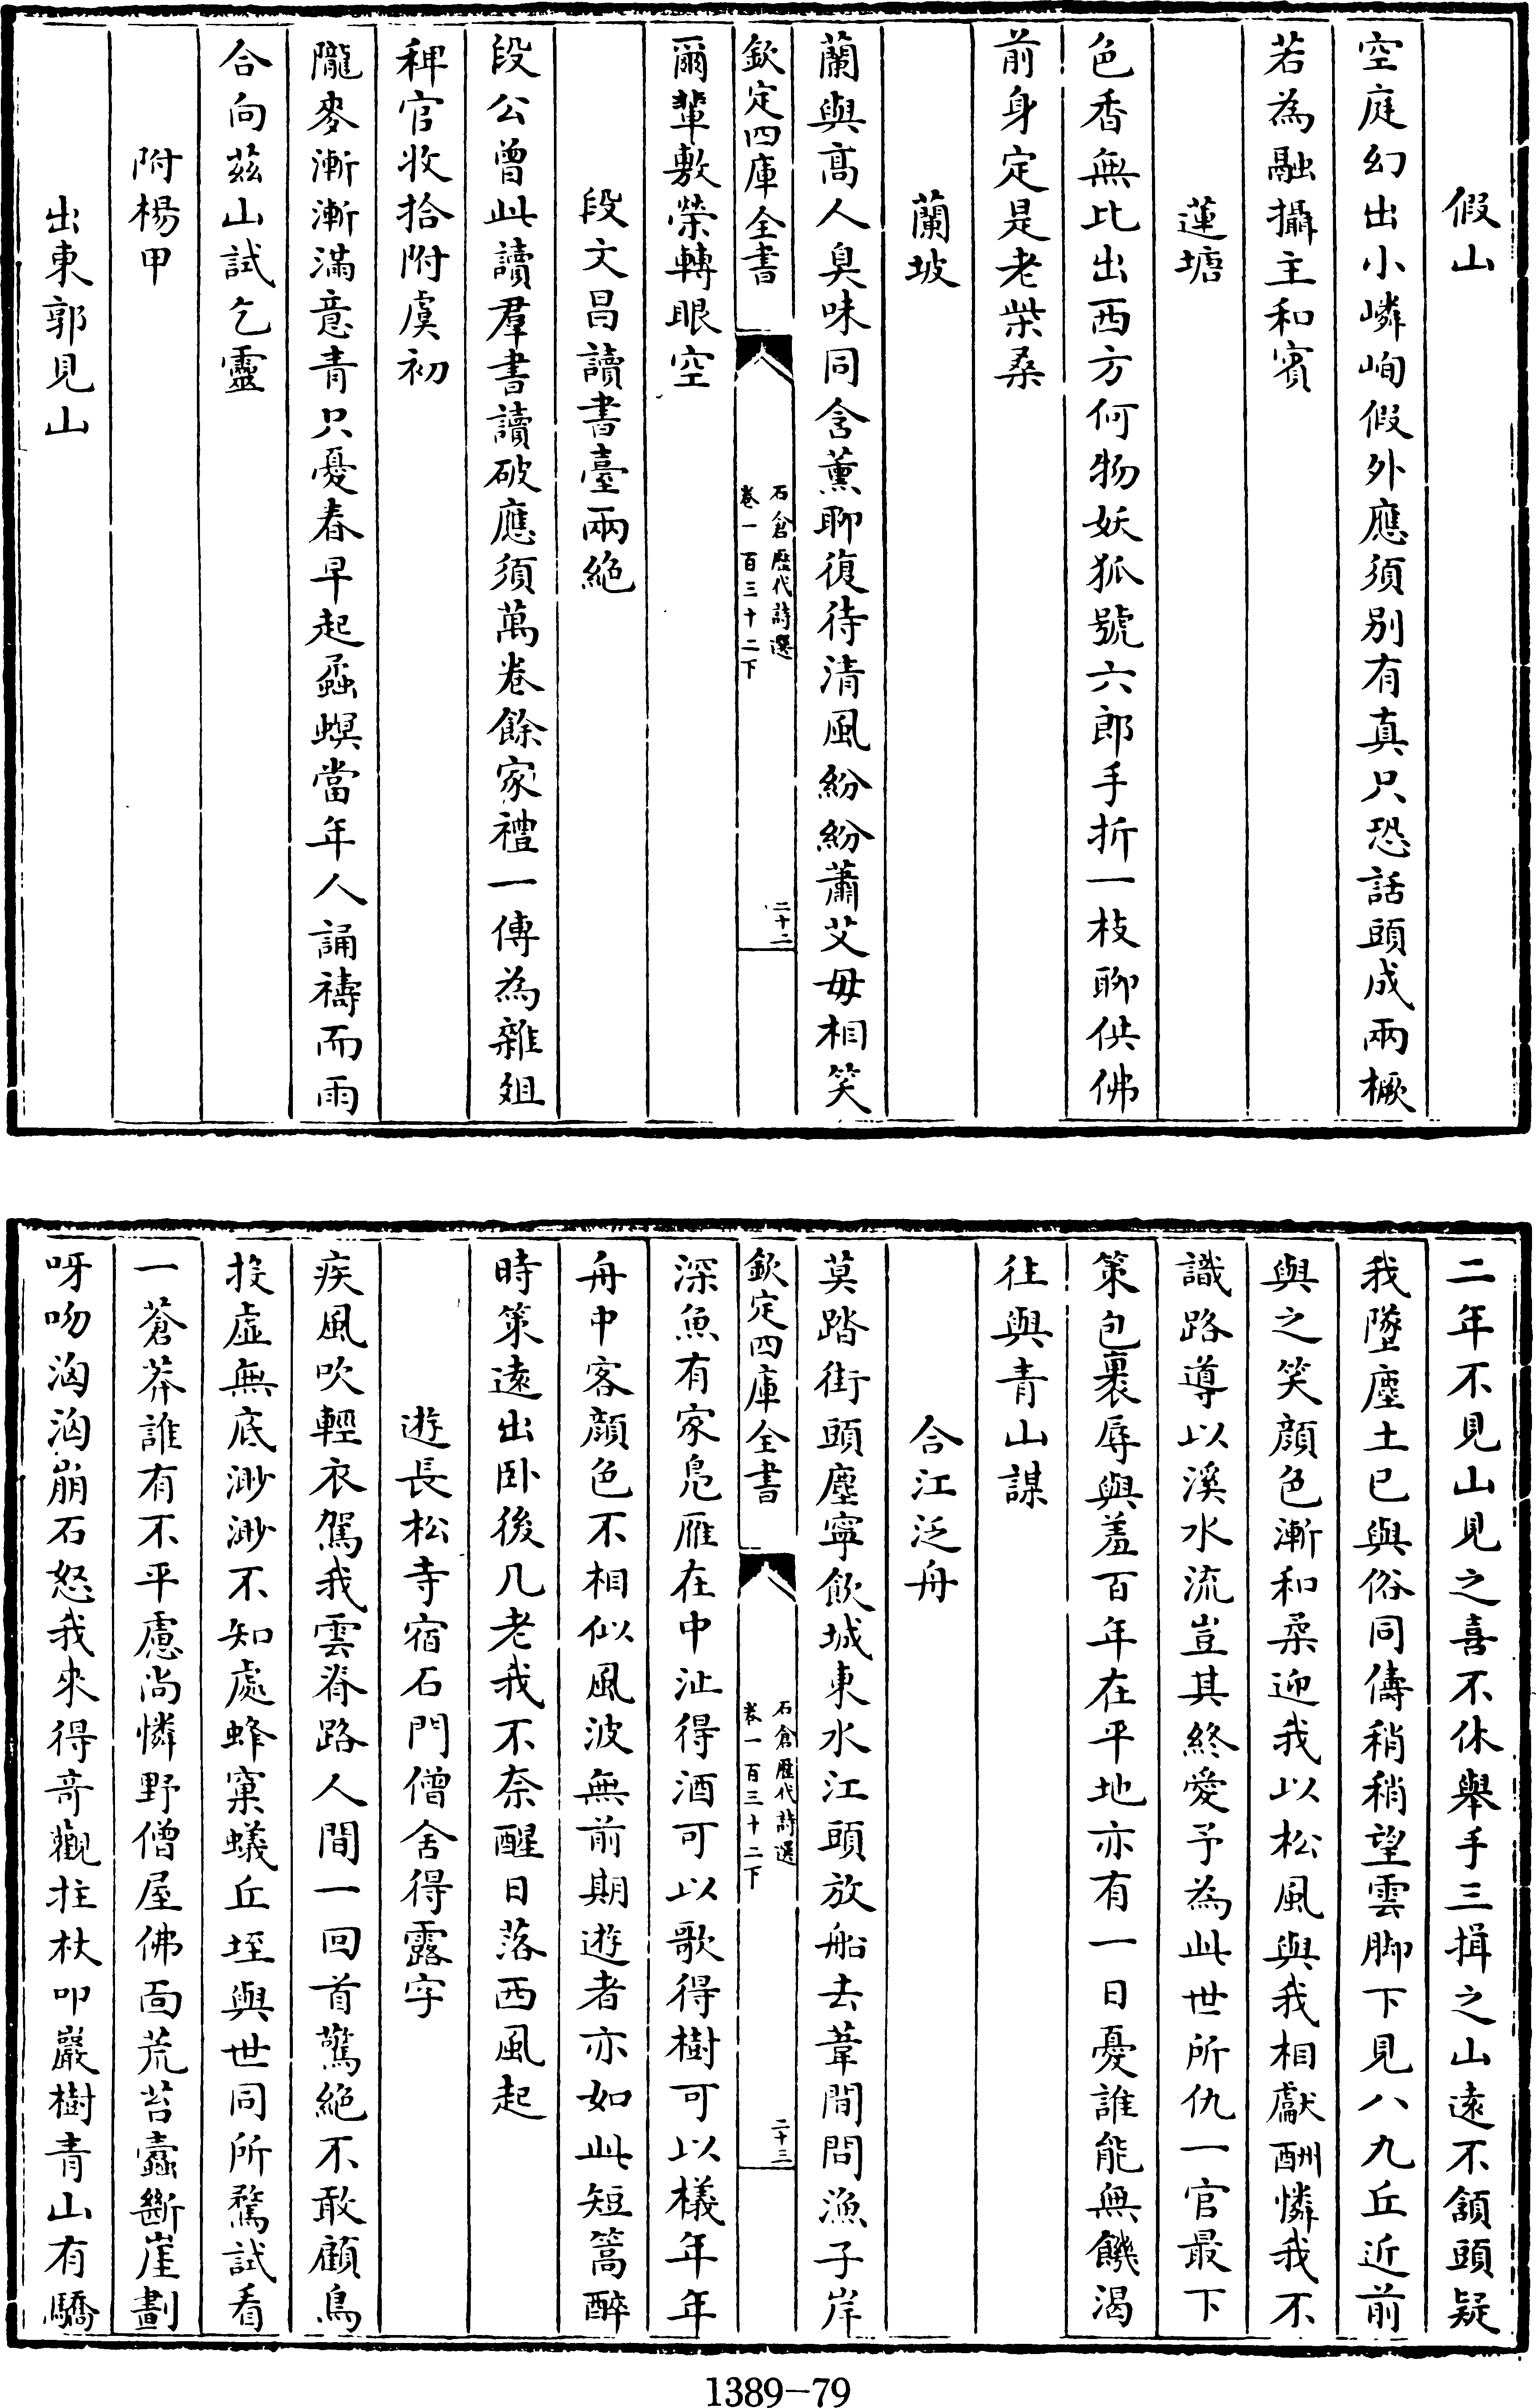 假山
空庭幻出小嶙峋假外應須别有真只恐話頭成兩橛
若為融攝主和賓
蓮塘
色香無比出西方何物妖狐號六郎手折一枝聊供佛
前身定是老柴桑
蘭坡
蘭與髙人臭味同含薰聊復待清風紛紛蕭艾毋相笑
欽定四庫全書
石倉歴代詩選
卷一百三十二下
二十二
爾輩敷榮轉眼空
段文昌讀書臺兩絶
段公曽此讀羣書讀破應須萬卷餘家禮一傳為雜俎
稗官收拾附虞初
隴麥漸漸滿意青只憂春早起蟊螟當年人誦禱而雨
合向兹山試乞靈
附楊甲
出東郭見山
二年不見山見之喜不休舉手三揖之山遠不頷頭疑
我墜塵土已與俗同儔稍稍望雲脚下見八九丘近前
與之笑顔色漸和柔迎我以松風與我相獻酬憐我不
識路導以溪水流豈其終愛予為此世所仇一官最下
策包裹辱與羞百年在平地亦有一日憂誰能無饑渴
往與青山謀
合江泛舟
莫踏街頭塵寧飲城東水江頭放船去葦間問漁子岸
欽定四庫全書
石倉歴代詩選
卷一百三十二下
二十三
深魚有家凫雁在中沚得酒可以歌得樹可以檥年年
舟中客顔色不相似風波無前期遊者亦如此短篙醉
時策遠出卧後几老我不奈醒日落西風起
遊長松寺宿石門僧舍得露字
疾風吹輕衣駕我雲脊路人間一回首驚絶不敢顧鳥
投虚無底渺渺不知處蜂窠蟻丘垤與世同所騖試看
一蒼莽誰有不平慮尚憐野僧屋佛面荒苔蠹斷崖劃
呀吻洶洶崩石怒我來得竒觀拄杖叩巖樹青山有驕
1389-79